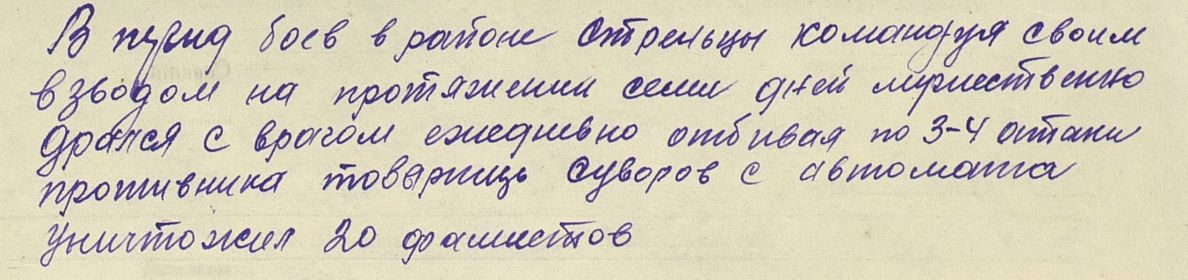 В пугид боев в районе Стрельцы командуя своим
взводом на протяжении семи дней мужественно
дрался с врагом ежедневно отбивая по 3-4 атаки
противника товарищь Суворов с автомата
уничтожил 20 фашистов